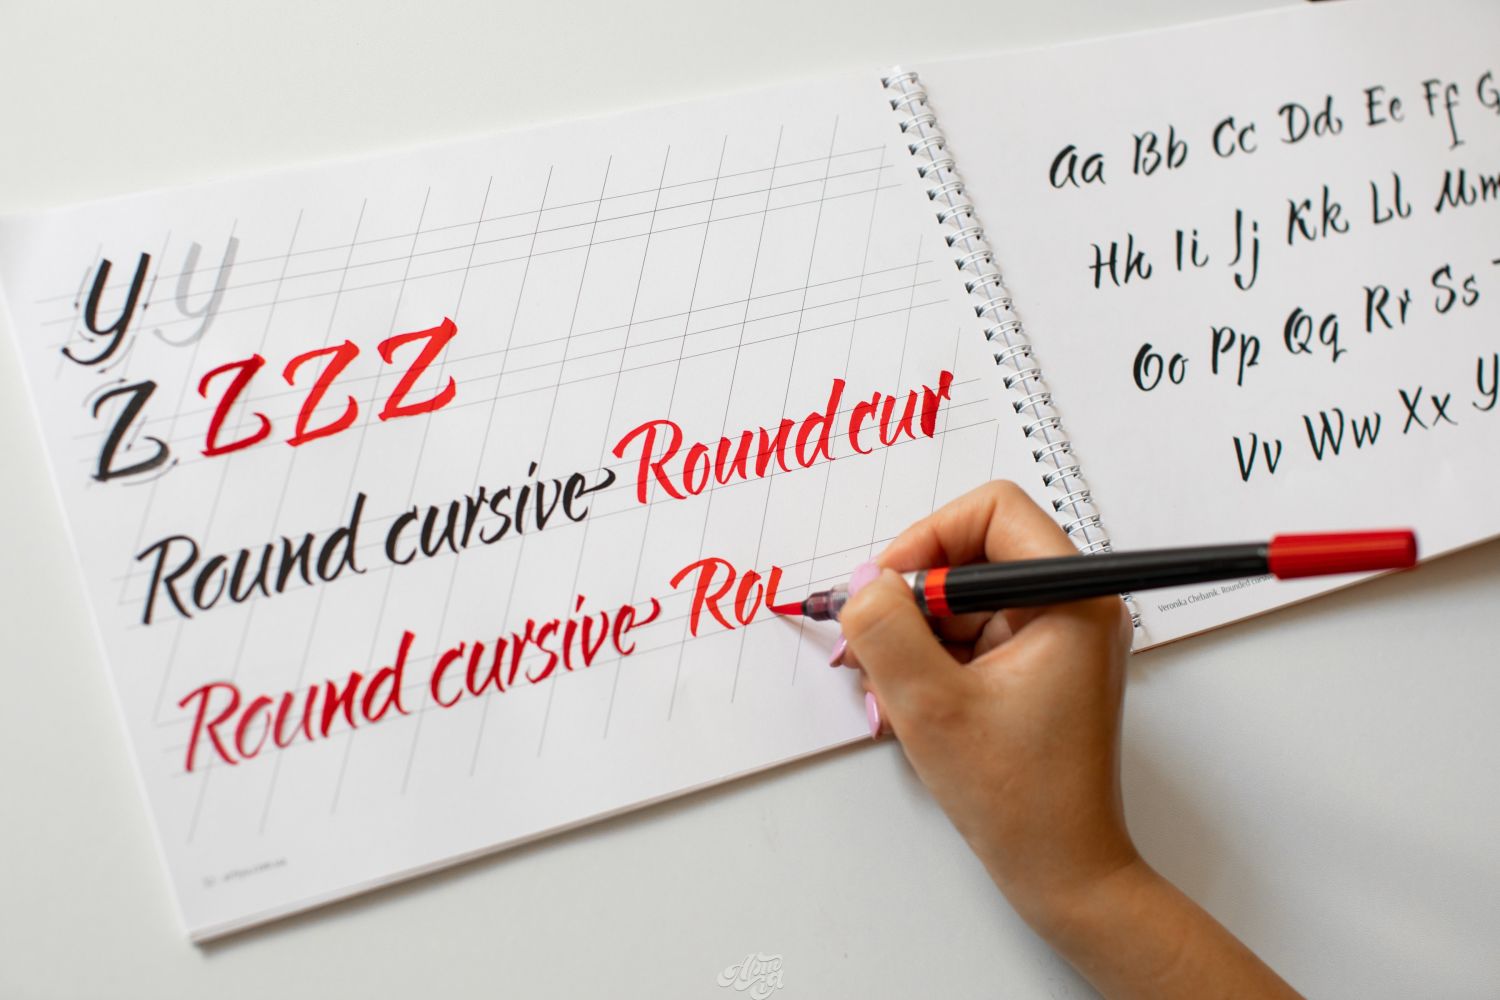 y y
z z z z
Round cursive Round cur
Round cursive Rou
Aa Bb Cc Dd Ee Ff G
Hh Ii Jj Kk Ll Mm
Oo Pp Qq Rr Ss
Vv Ww Xx y
Veronika Chebanik. Rounded